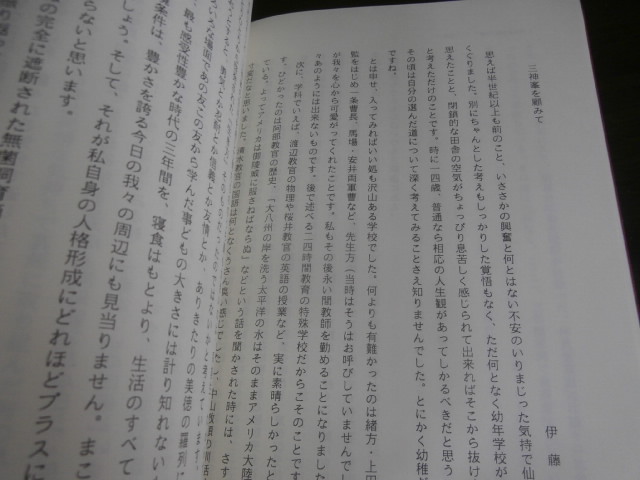 三神峯を顧みて
伊藤
思えば半世紀以上も前のこと、いささかの興奮と何とはない不安のいりまじった気持で仙
くぐりました。別にちゃんとした考えもしっかりした覚悟もなく、ただ何となく幼年学校が
思えたことと、閉鎖的な田舎の空気がちょっぴり息苦しく感じられて出来ればそこから抜け
と考えただけのことです。時に一四歳、普通なら相応の人生観があってしかるべきだと思う
その頃は自分の選んだ道について深く考えてみることさえ知りませんでした。とにかく幼稚
ですね。
とは申せ、入ってみればいい処も沢山ある学校でした。何よりも有難かったのは緒方・上田
監をはじめ一条曹長、馬場・安井両軍曹など、先生方(当時はそうはお呼びしていませんでし
が我々を心から可愛がってくれたことです。私もその後永い間教師を勤めることになりました
々あのようには出来ないものです。後で述べる二四時間教育の特殊学校だからこそのことです
次に、学科でいえば、渡辺教官の物理や桜井教官の英語の授業など、実に素晴らしかったと
す。ひどかったのは阿部教官の歴史、「大八州の岸を洗う太平洋の水はそのままアメリカ大陸
ている、よってアメリカは御稜威に服さねばならぬ」などという話を聞かされた時には、さす
ありきたりの美徳の羅列に
から学んだ事どもの大きさには計り知れない
最も感受性豊かな時代の三年間を、寝食はもとより、生活のすべて
条件は、豊かさを誇る今日の我々の周辺にも見当りません。まこ
しょう。そして、それが私自身の人格形成にどれほどプラスに
らないと思います。
の完全に遮断された無菌飼育